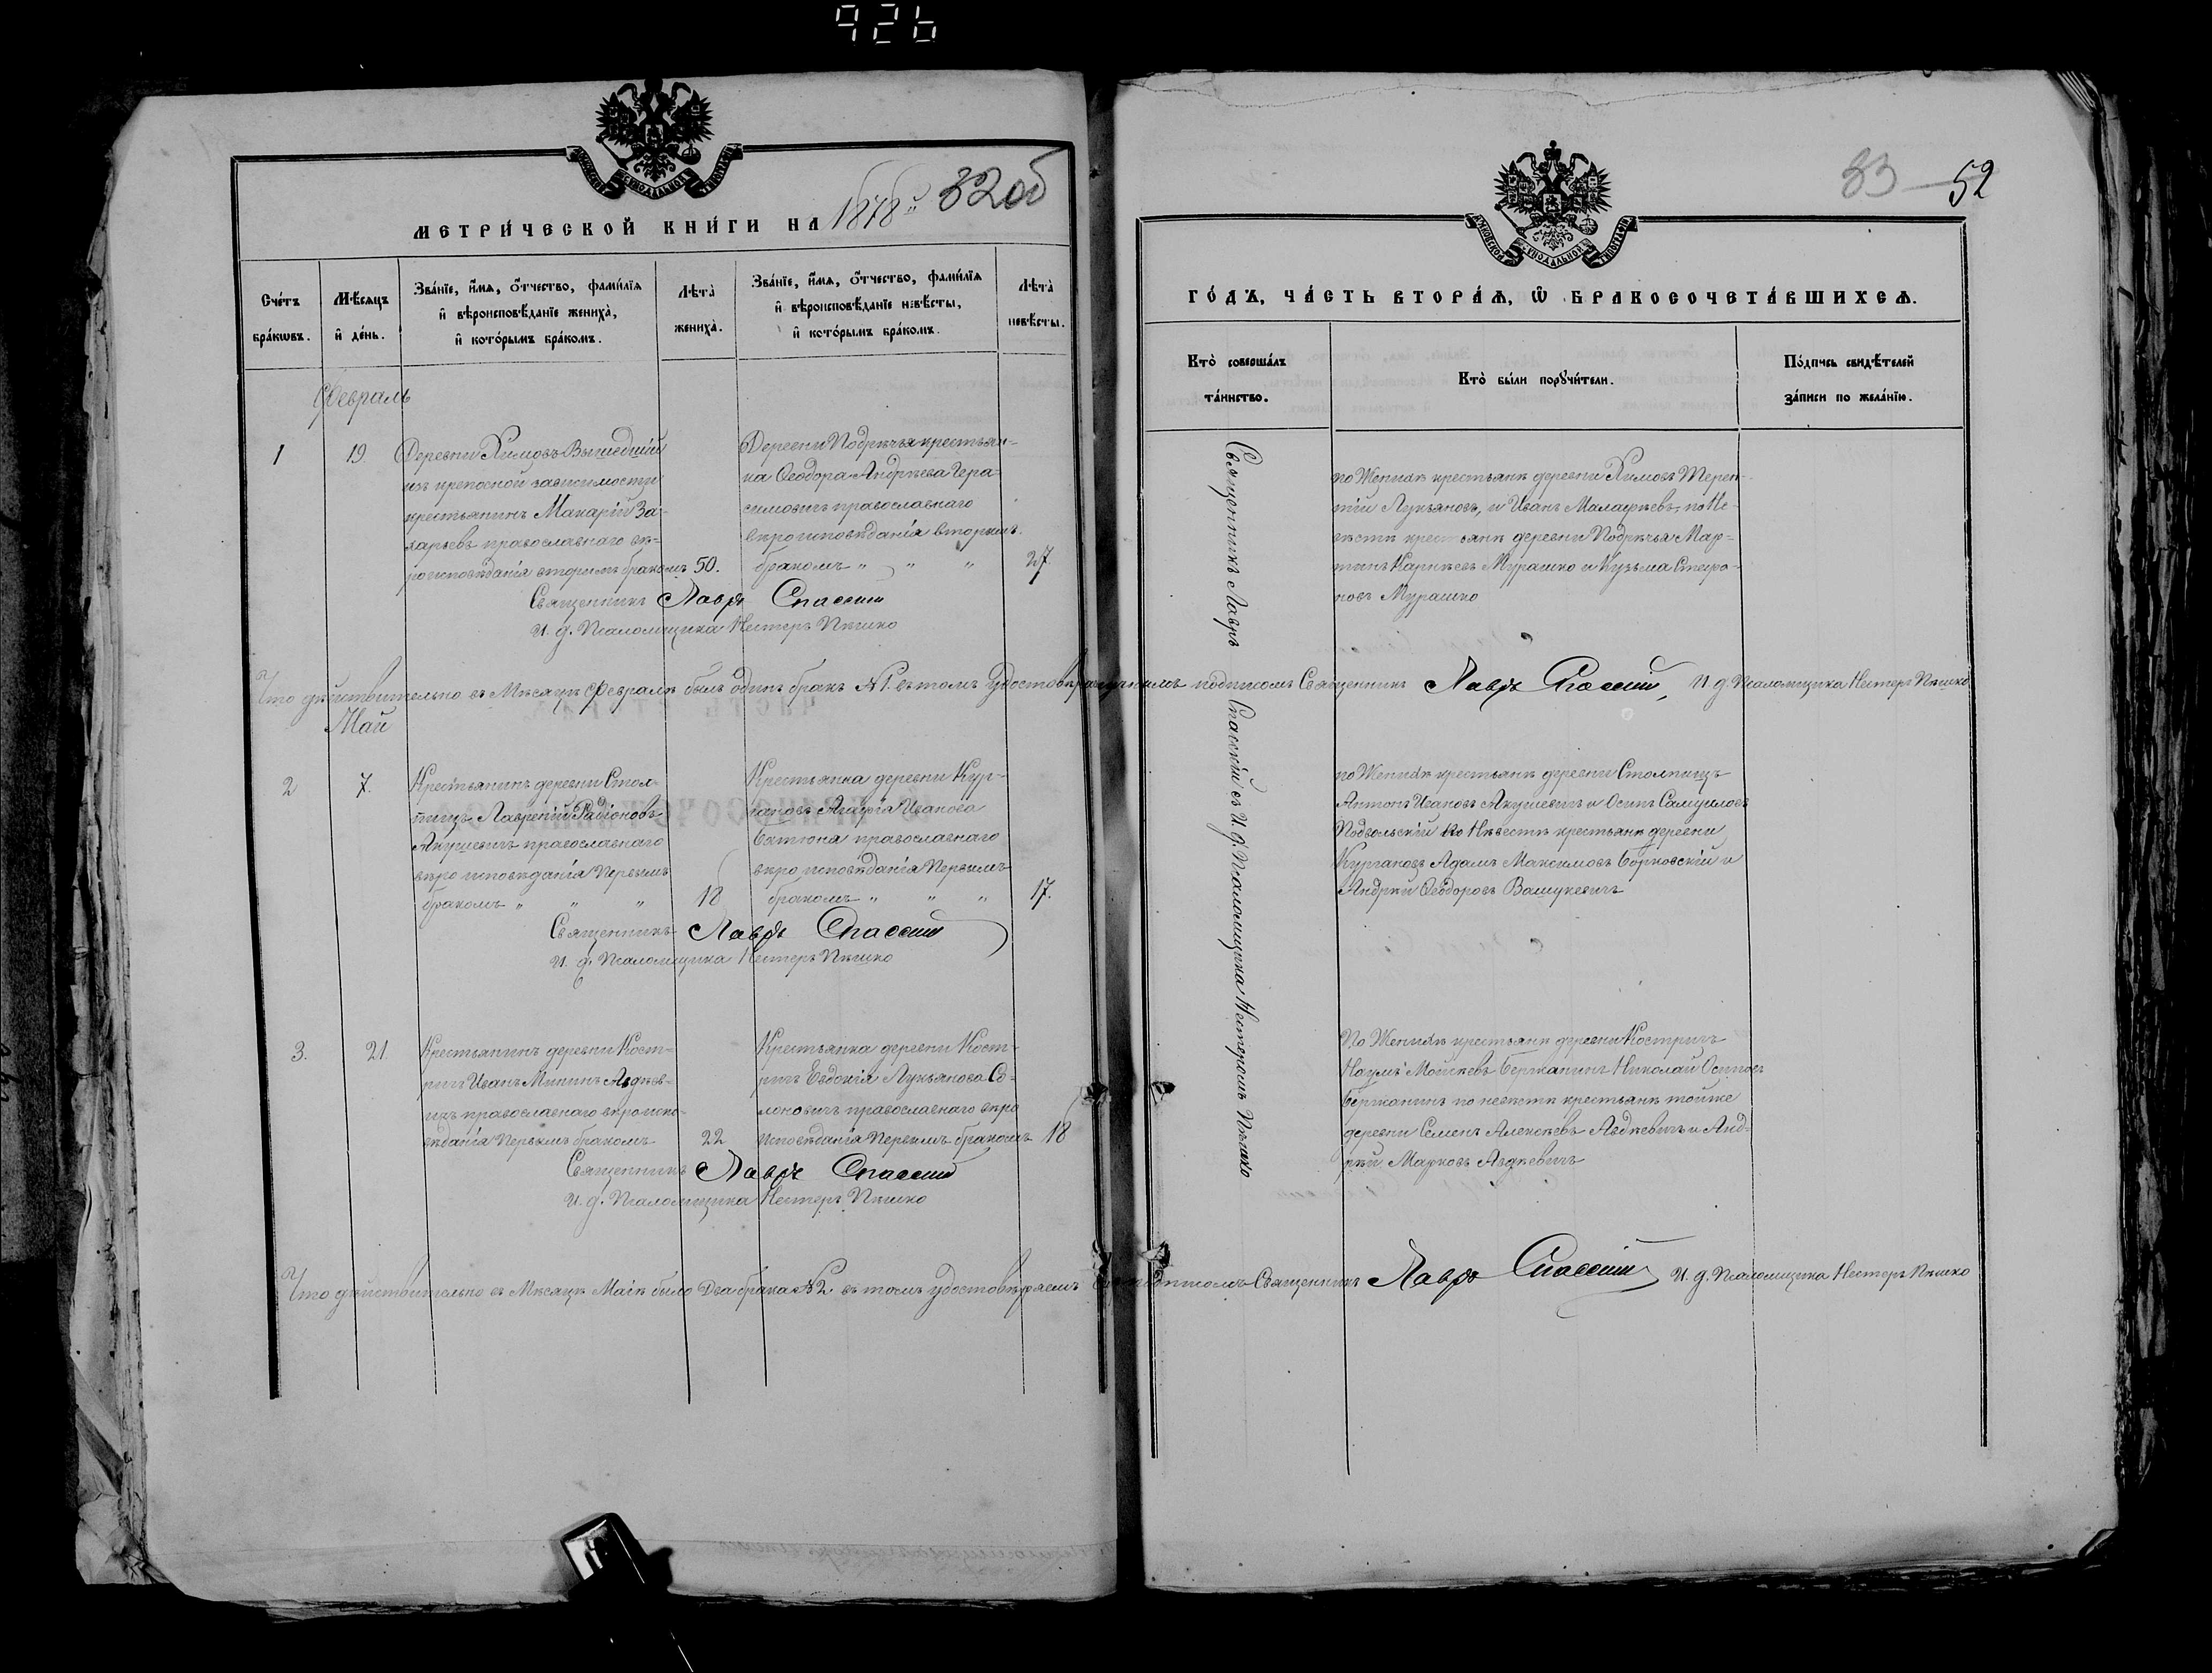 926
МЕТРИ́ЧЕСКОЙ КНИ́ГИ НА 1878й
32об
Сче́тъ бра́кωвъ.
Мѣ́сяцъ и҆ де́нь.
Зва́нїе, и҆́мя, ѻ҆́тчество, фами́лїя
и҆ вѣроисповѣ́данїе жениха̀,
и҆ кото́рымъ бра́комъ.
Лѣта̀ жениха̀.
Зва́нїе, и҆́мя, ѻ҆́тчество, фами́лїя
и҆ вѣроисповѣ́данїе невѣ́сты,
и҆ кото́рымъ бра́комъ.
Лѣта̀ невѣ́сты.
Февраль
1
19
Деревни Химовъ Вышедшій
изъ крепосной зависимости
крестьянинъ Макарій За-
харьевъ православнаго вѣ-
роисповѣданія вторымъ бракомъ
50.
Деревни Подрѣчья крестьян-
ка Ѳеодора Андрѣева Гера-
симовичъ православнаго
вѣроисповѣданія вторымъ
бракомъ " " "
27.
Священникъ Лавръ Спасскій
И. д. Псаломщика Нестеръ Пѣшко
Что дѣйствительно въ Мѣсяцѣ Февралѣ былъ одинъ бракъ №1. въ томъ удостовѣряемъ подписомъ Священникъ Лавръ Спасскій, И. д. Псаломщика Нестеръ Пѣшко
Май
2
7.
Крестьянинъ деревни Стол-
пищъ Лаврентій Радіоновъ
Акушевичъ православнаго
вѣроисповѣданія Первымъ
бракомъ " " "
18
Крестьянка деревни Кур-
гановъ Агафія Иванова
Батюна православнаго
вѣроисповѣданія Первымъ
бракомъ " " "
17.
Священникъ Лавръ Спасскій
И. д. Псаломщика Нестеръ Пѣшко
3.
21.
Крестьянинъ деревни Кост-
ричъ Иванъ Мининъ Авдѣев-
ичъ православнаго вѣроиспо-
вѣданія Первымъ бракомъ
22
Крестьянка деревни Кост-
ричъ Евдокія Лукьянова Со-
лоновичъ православнаго вѣро
исповѣданія Первымъ бракомъ
18
Священникъ Лавръ Спасскій
И. д. Псаломщика Нестеръ Пѣшко
Что дѣйствительно въ Мѣсяцѣ Маіѣ было Два брака №2 въ томъ удостовѣряемъ подписомъ Священникъ Лавръ Спасскій И. д. Псаломщика Нестеръ Пѣшко
83 52
ГО́ДЪ, ЧА́СТЬ ВТОРА́Я, Ѡ҆ БРАКОСОЧЕТА́ВШИХСЯ.
Кто̀ соверша́лъ та́инство.
Кто̀ бы́ли порꙋчи́тели.
По́дпись свидѣ́телей
за́писи по жела́нїю.
Священникъ Лавръ Спасскій съ И. д. Псаломщика Нестеромъ Пѣшко
по Женихѣ крестьянѣ деревни Химовъ Терен-
тій Лукьяновъ, и Иванъ Малафѣевъ, по Не-
вѣстѣ крестьянѣ деревни Подрѣчья Мар-
тинъ Карнѣевъ Мурашко и Кузьма Стефа-
новъ Мурашко
по Женихѣ крестьянѣ деревни Столпищъ
Антонъ Ивановъ Акушевичъ и Осипъ Самуиловъ
Подвольскій по Невестѣ крестьянѣ деревни
Кургановъ Адамъ Максимовъ Борковскій и
Андрѣй Ѳеодоровъ Вашукевичъ
По Женихѣ крестьянѣ деревни Костричъ
Наумъ Мойсѣевъ Бержанинъ Николай Осиповъ
Бержанинъ по невѣстѣ крестьянѣ тойже
деревни Семенъ Алексѣевъ Авдѣевичъ и Анд-
рѣй Марковъ Авдѣевичъ